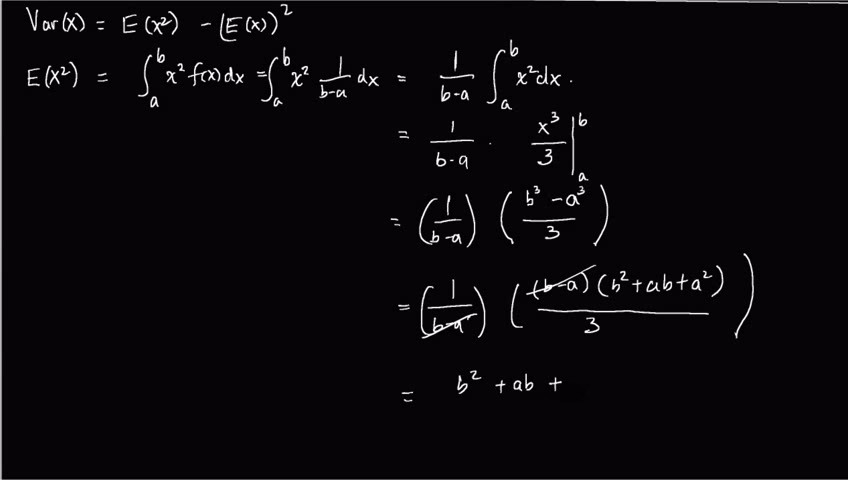 Var(x) = E(x²) - (E(x))²
E(x²) = ∫_a^b x² f(x) dx = ∫_a^b x² 1/(b-a) dx = 1/(b-a) ∫_a^b x² dx.
= 1/(b-a) · x³/3 |_a^b
= (1/(b-a)) ((b³ - a³)/3)
= (1/(b-a)) ((b-a)(b² + ab + a²)/3)
= b² + ab +